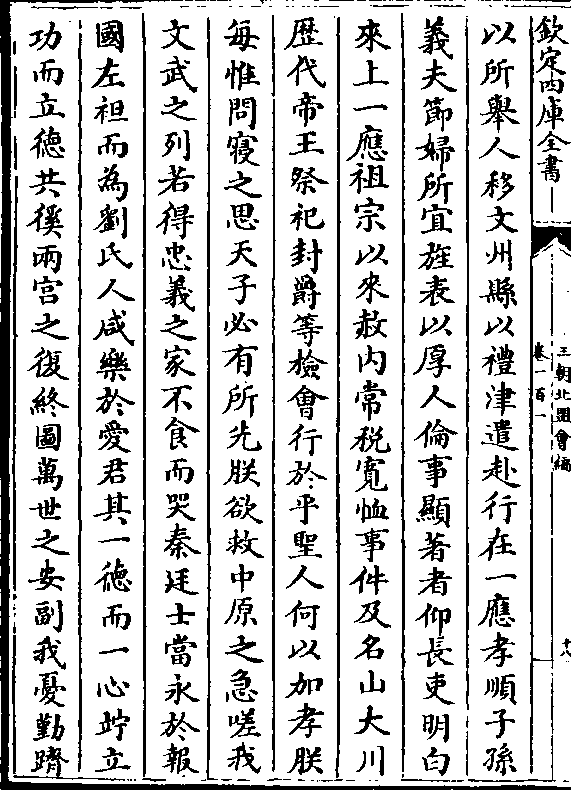 欽定四庫全書
三朝北盟會編
卷一百一
十八
以所舉人移文州縣以禮津遣赴行在一應孝順子孫
義夫節婦所宜旌表以厚人倫事顯著者仰長吏明白
來上一應祖宗以來赦內常税寛恤事件及名山大川
歴代帝王祭祀封爵等檢會行於乎聖人何以加孝朕
每惟問寢之思天子必有所先朕欲救中原之急嗟我
文武之列若得忠義之家不食而哭秦廷士當永於報
國左袒而為劉氏人咸樂於愛君其一德而一心竚立
功而立德共徯兩宫之復終圖萬世之安副我憂勤躋